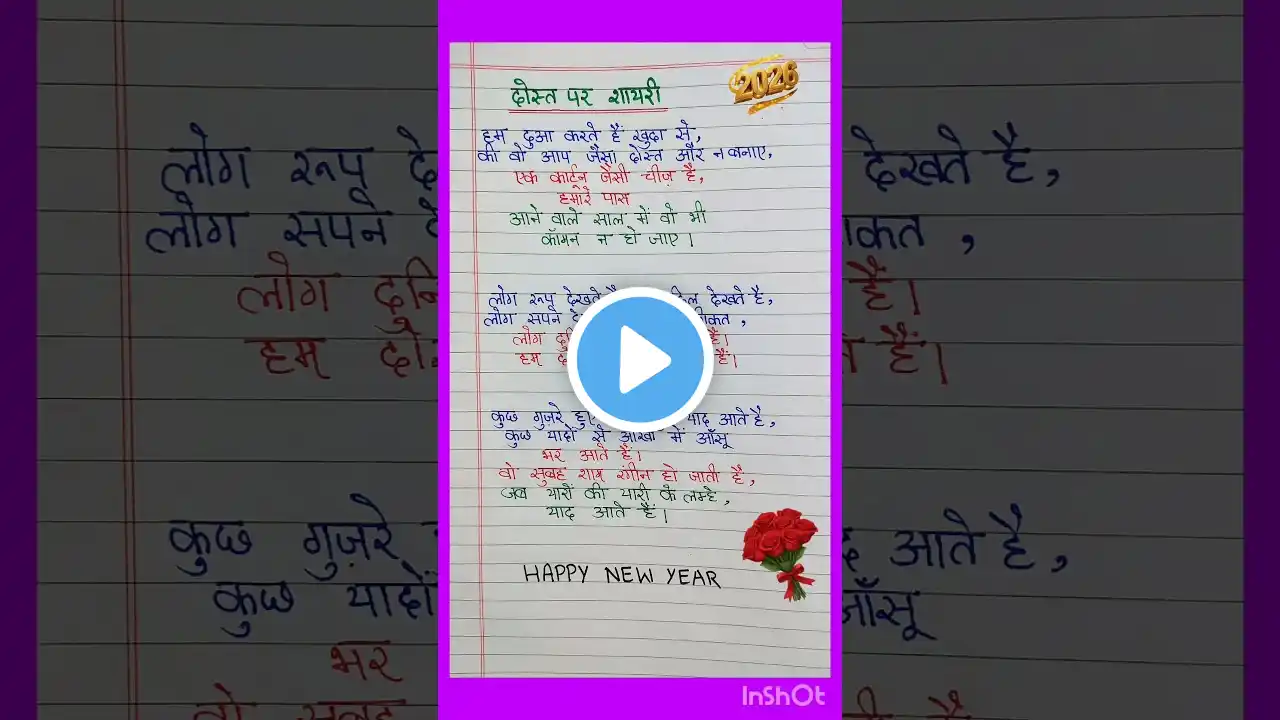 2026
दोस्त पर शायरी
हम दुआ करते हैं खुदा से,
की वो आप जैसा दोस्त और न बनाए,
एक कार्टून जैसी चीज़ है,
हमारे पास
आने वाले साल में वो भी
कॉमन न हो जाए।
लोग रूप देखते है देखते है,
लोग सपने
लोग है।
हम हैं।
कुछ गुज़रे याद आते है,
कुछ यादों से आंखों में आँसू
भर आते हैं।
वो सुबह शाम रंगीन हो जाती है,
जब यारों की यारी के लम्हे,
याद आते हैं।
HAPPY NEW YEAR
InShOt